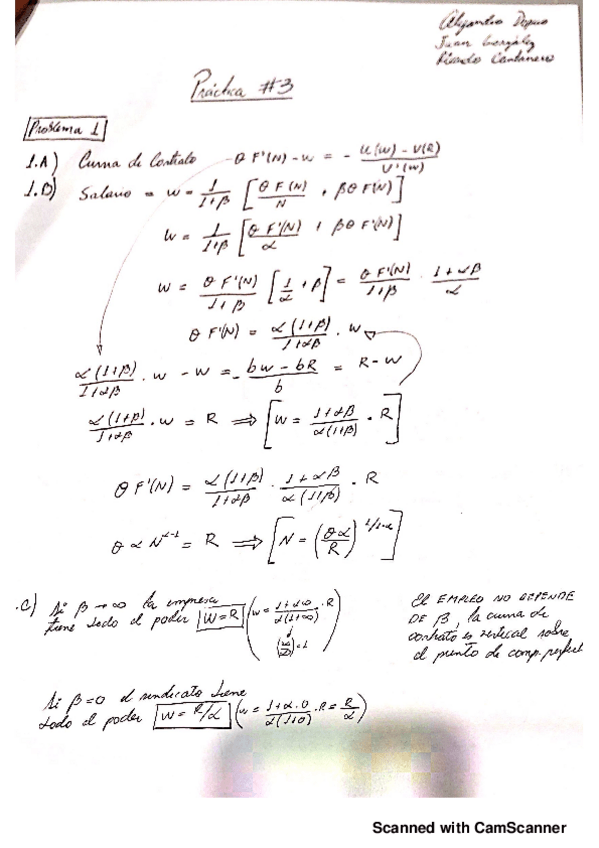 Alejandro
Juan González
Ricardo
Práctica #3
Problema 1
1.A) Curva de Contrato θF'(N) - w = - (U(w) - V(R)) / U'(w)
1.B) Salario = w = 1/(1+β) [θF(N)/N + βθF'(N)]
w = 1/(1+β) [θF'(N)/α + βθF'(N)]
w = θF'(N)/(1+β) [1/α + β] = θF'(N)/(1+β) · (1+αβ)/α
θF'(N) = α(1+β)/(1+αβ) · w
α(1+β)/(1+αβ) · w - w = - (bw - bR)/b = R - w
α(1+β)/(1+αβ) · w = R ⟹ [w = (1+αβ)/(α(1+β)) · R]
θF'(N) = α(1+β)/(1+αβ) · (1+αβ)/(α(1+β)) · R
θαN^(α-1) = R ⟹ [N = (θα/R)^(1/1-α)]
.C) Si β→∞ la empresa
tiene todo el poder W=R (w = (1+α∞)/(α(1+∞)) · R
(∞/∞)=1)
EL EMPLEO NO DEPENDE
DE β, la curva de
contrato es vertical sobre
el punto de comp. perfect
Si β=0 el sindicato tiene
todo el poder W = R/α (w = (1+α·0)/(α(1+0)) · R = R/α)
Scanned with CamScanner